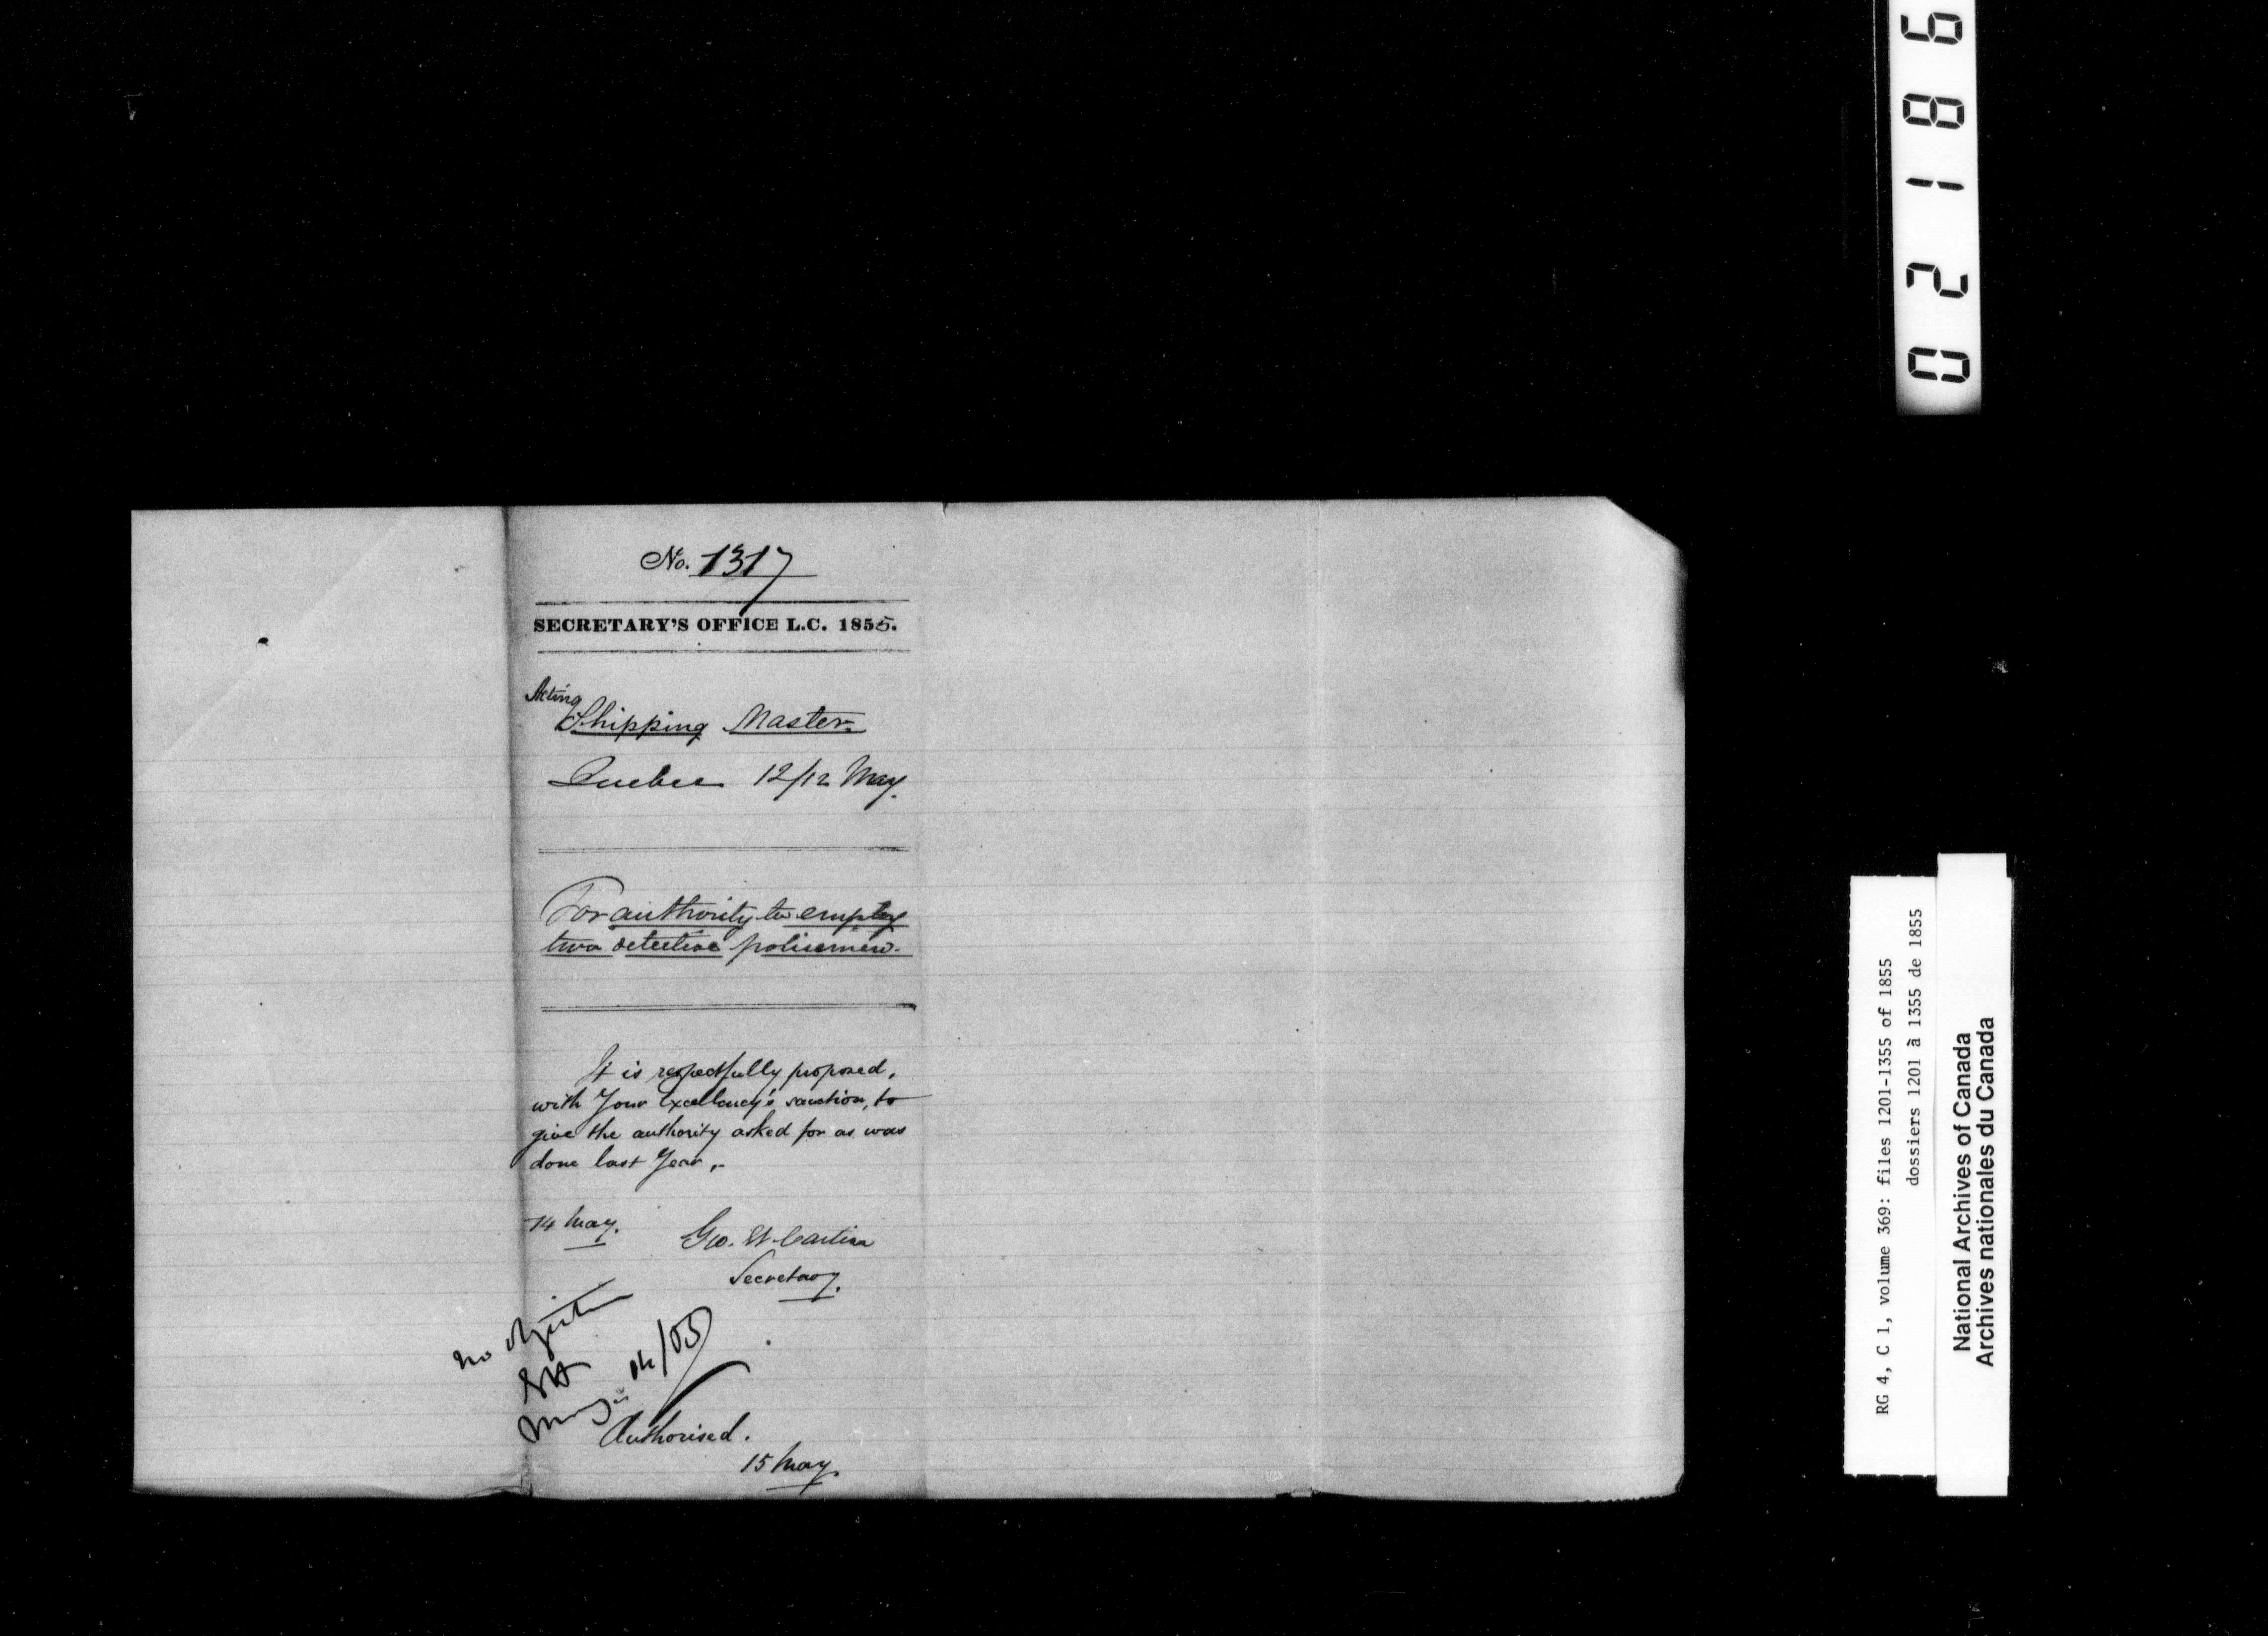 No. 1317
SECRETARY'S OFFICE L.C. 1855.
Acting
Shipping Master
Quebec 12/12 May.
For authority to employ
two detective policemen.
It is respectfully proposed,
with Your Excellency's sanction, to
give the authority asked for as was
done last Year.
14 May.
Geo. Et. Cartier
Secretary.
no objection
May 14/55
Authorised.
15 May.
02186
RG 4, C 1, volume 369: files 1201-1355 of 1855
dossiers 1201 à 1355 de 1855
National Archives of Canada
Archives nationales du Canada